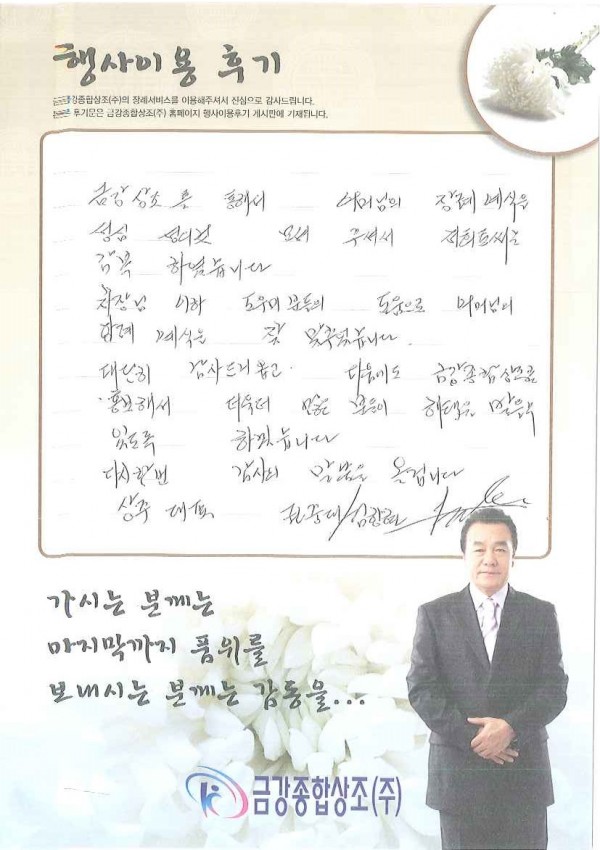 행사이용 후기
금강종합상조(주)의 장례서비스를 이용해주셔서 진심으로 감사드립니다.
본 후기문은 금강종합상조(주) 홈페이지 행사이용후기 게시판에 기재됩니다.
금강상조를 통해서 어머님의 장례예식을
성심 성의것 모셔 주셔서
감복 하였습니다
차장님 이하 도우미분들의 도움으로 어머님이
장례 예식은 잘 맞추었습니다.
대단히 감사드리옵고 다음에도 금강종합상조를
홍보해서 더욱더 많은 분들이 혜택을 받을수
있도록 하겠습니다
다시한번 감사의 말씀을 올립니다
상주 대표
가시는 분께는
마지막까지 품위를
보내시는 분께는 감동을...
금강종합상조(주)